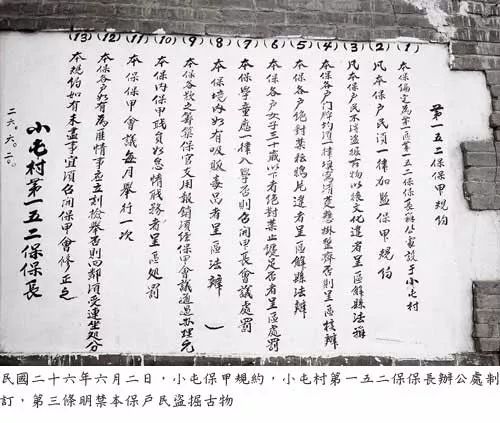 第一五二保保甲規約
(1) 本保編定為第一區第一五二保保長辦公處設于小屯村
(2) 凡本保户民須一律加盟保甲規約
(3) 凡本保户民不得盜掘古物以維文化違者呈區解縣法辦
(4) 本保各户门牌均須一律填寫清楚懸掛整齊否則呈區核辦
(5) 本保各户絕對禁於鴉片違者呈區解縣法辦
(6) 本保各户女子三十歲以下者絕對禁止纏足否者呈區處罰
(7) 本保學童應一律入學否則召開甲長會議處罰
(8) 本保境內如有吸販毒品者呈區法辦
(9) 本保各教之籌築保官支用報銷須經保甲會議通過办理完
(10) 本保內保甲職員如怠情職務者呈區處罰
(11) 本保保甲會議每月舉行一次
(12) 本保各户如有為匪情事應立刻檢舉否則四鄰須受連坐処分
(13) 本規约如有未盡事宜須召開保甲會修正之
小屯村第一五二保保長
二六.六.二.
民國二十六年六月二日，小屯保甲規約，小屯村第一五二保保長辦公處制
訂，第三條明禁本保戶民盜掘古物